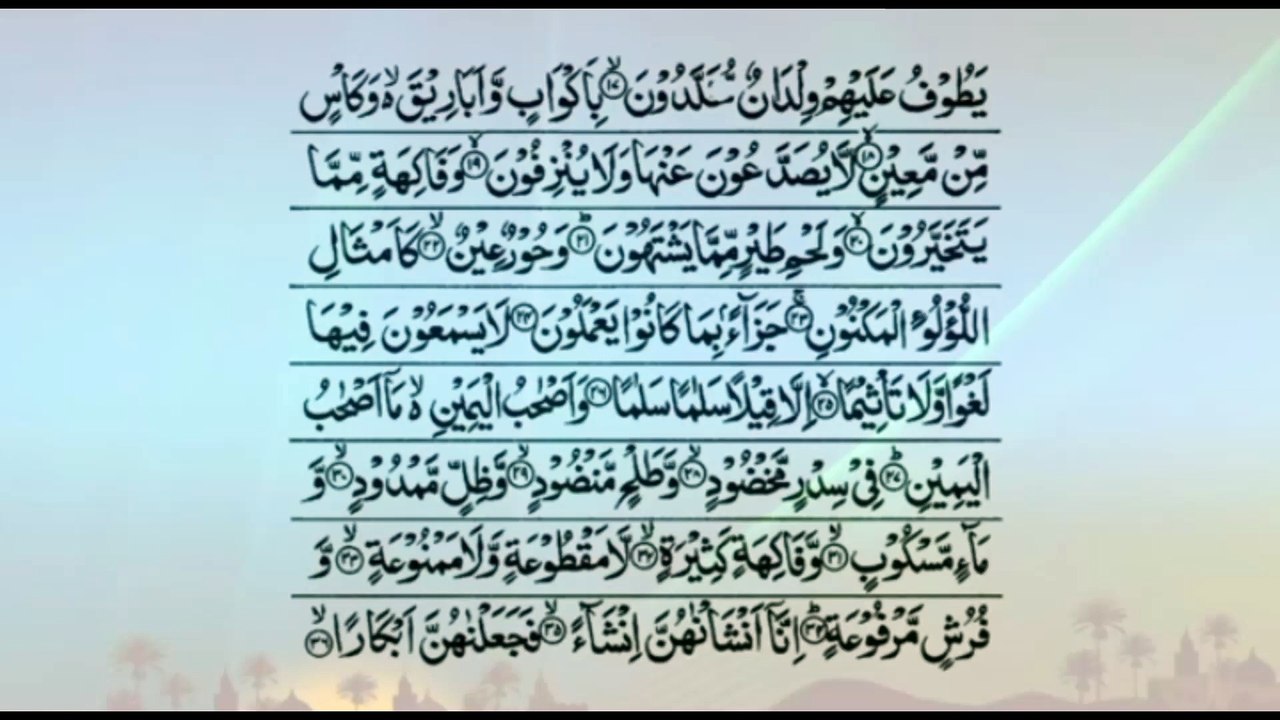 يَطُوۡفُ عَلَيۡهِمۡ وِلۡدَانٌ مُّخَلَّدُوۡنَ ۙ‏﴿۱۷﴾ بِاَكۡوَابٍ وَّاَبَارِيۡقَ ۙ وَكَاۡسٍ
مِّنۡ مَّعِيۡنٍ ۙ‏﴿۱۸﴾ لَّا يُصَدَّعُوۡنَ عَنۡهَا وَلَا يُنۡزِفُوۡنَ ۙ‏﴿۱۹﴾ وَفَاكِهَةٍ مِّمَّا
يَتَخَيَّرُوۡنَ ۙ‏﴿۲۰﴾ وَلَحۡمِ طَيۡرٍ مِّمَّا يَشۡتَهُوۡنَ ؕ‏﴿۲۱﴾ وَحُوۡرٌ عِيۡنٌ ۙ‏﴿۲۲﴾ كَاَمۡثَالِ
اللُّؤۡلُـوٴِ الۡمَكۡنُوۡنِ ۚ‏﴿۲۳﴾ جَزَآءًۢ بِمَا كَانُوۡا يَعۡمَلُوۡنَ ﴿۲۴﴾ لَا يَسۡمَعُوۡنَ فِيۡهَا
لَغۡوًا وَّلَا تَاۡثِيۡمًا ۙ‏﴿۲۵﴾ اِلَّا قِيۡلًا سَلٰمًا سَلٰمًا ﴿۲۶﴾ وَاَصۡحٰبُ الۡيَمِيۡنِ ۙ مَاۤ اَصۡحٰبُ
الۡيَمِيۡنِ ؕ‏﴿۲۷﴾ فِىۡ سِدۡرٍ مَّخۡضُوۡدٍ ۙ‏﴿۲۸﴾ وَّطَلۡحٍ مَّنۡضُوۡدٍ ۙ‏﴿۲۹﴾ وَّظِلٍّ مَّمۡدُوۡدٍ ۙ‏﴿۳۰﴾ وَّ
مَآءٍ مَّسۡكُوۡبٍ ۙ‏﴿۳۱﴾ وَّفَاكِهَةٍ كَثِيۡرَةٍ ۙ‏﴿۳۲﴾ لَّا مَقۡطُوۡعَةٍ وَّلَا مَمۡنُوۡعَةٍ ۙ‏﴿۳۳﴾ وَّ
فُرُشٍ مَّرۡفُوۡعَةٍ ؕ‏﴿۳۴﴾ اِنَّاۤ اَنۡشَاۡنٰهُنَّ اِنۡشَآءً ۙ‏﴿۳۵﴾ فَجَعَلۡنٰهُنَّ اَبۡكَارًا ۙ‏﴿۳۶﴾